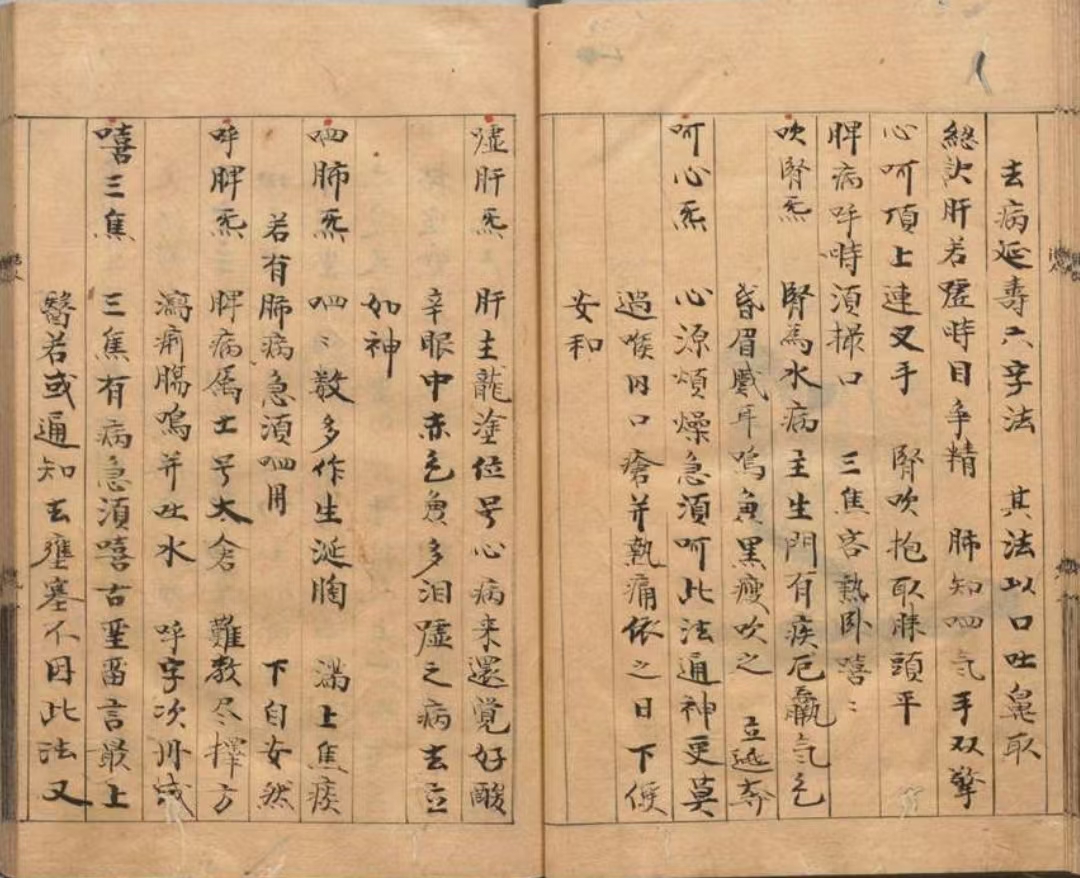 去病延壽六字法 其法以口吐鼻取
總訣肝若噓時目争精 肺知呬气手双擎
心呵頂上連叉手 腎吹抱取膝頭平
脾病呼時須撮口 三焦客热卧嘻〻
吹腎炁 腎為水病主生門有疾厄羸气色
昏眉蹙耳鳴鼻黑瘦吹之 立逝奔
呵心炁 心源煩燥急須呵此法通神更莫
過喉内口瘡并熱痛依之日下便
安和
噓肝炁 肝主龍塗位号心病来還覚好酸
辛眼中赤色兼多泪噓之病去立
如神
呬肺炁 呬〻数多作生涎胸 满上焦痰
若有肺病急須呬用 下自安然
呼脾炁 脾病属土号太倉 難教尽擇方
瀉痢腸鳴并吐水 呼字次丹成
嘻三焦 三焦有病急須嘻古聖留言最上
醫若或通知去壅塞不因此法又